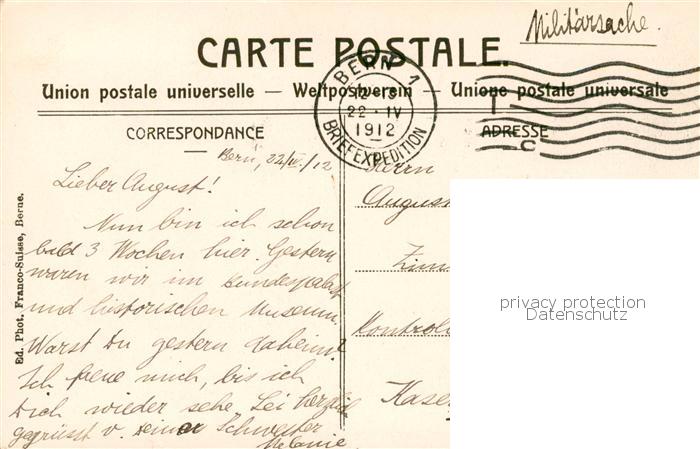 Militärsache.
CARTE POSTALE.
Union postale universelle — Weltpostverein — Unione postale universale
BERN 1
22 · IV
1912
BRIEFEXPEDITION
CORRESPONDANCE
ADRESSE
Bern, 22/IV./12
Lieber August!
Nun bin ich schon
bald 3 Wochen hier. Gestern
waren wir im Bundespalast
und historischen Museum.
Warst Du gestern daheim?
Ich freue mich, bis ich
Dich wieder sehe. Sei herzlich
gegrüsst v. Deiner Schwester
Melanie
Herrn
August
Kontroll
Kase
Ed. Phot. Franco-Suisse, Berne.
privacy protection
Datenschutz